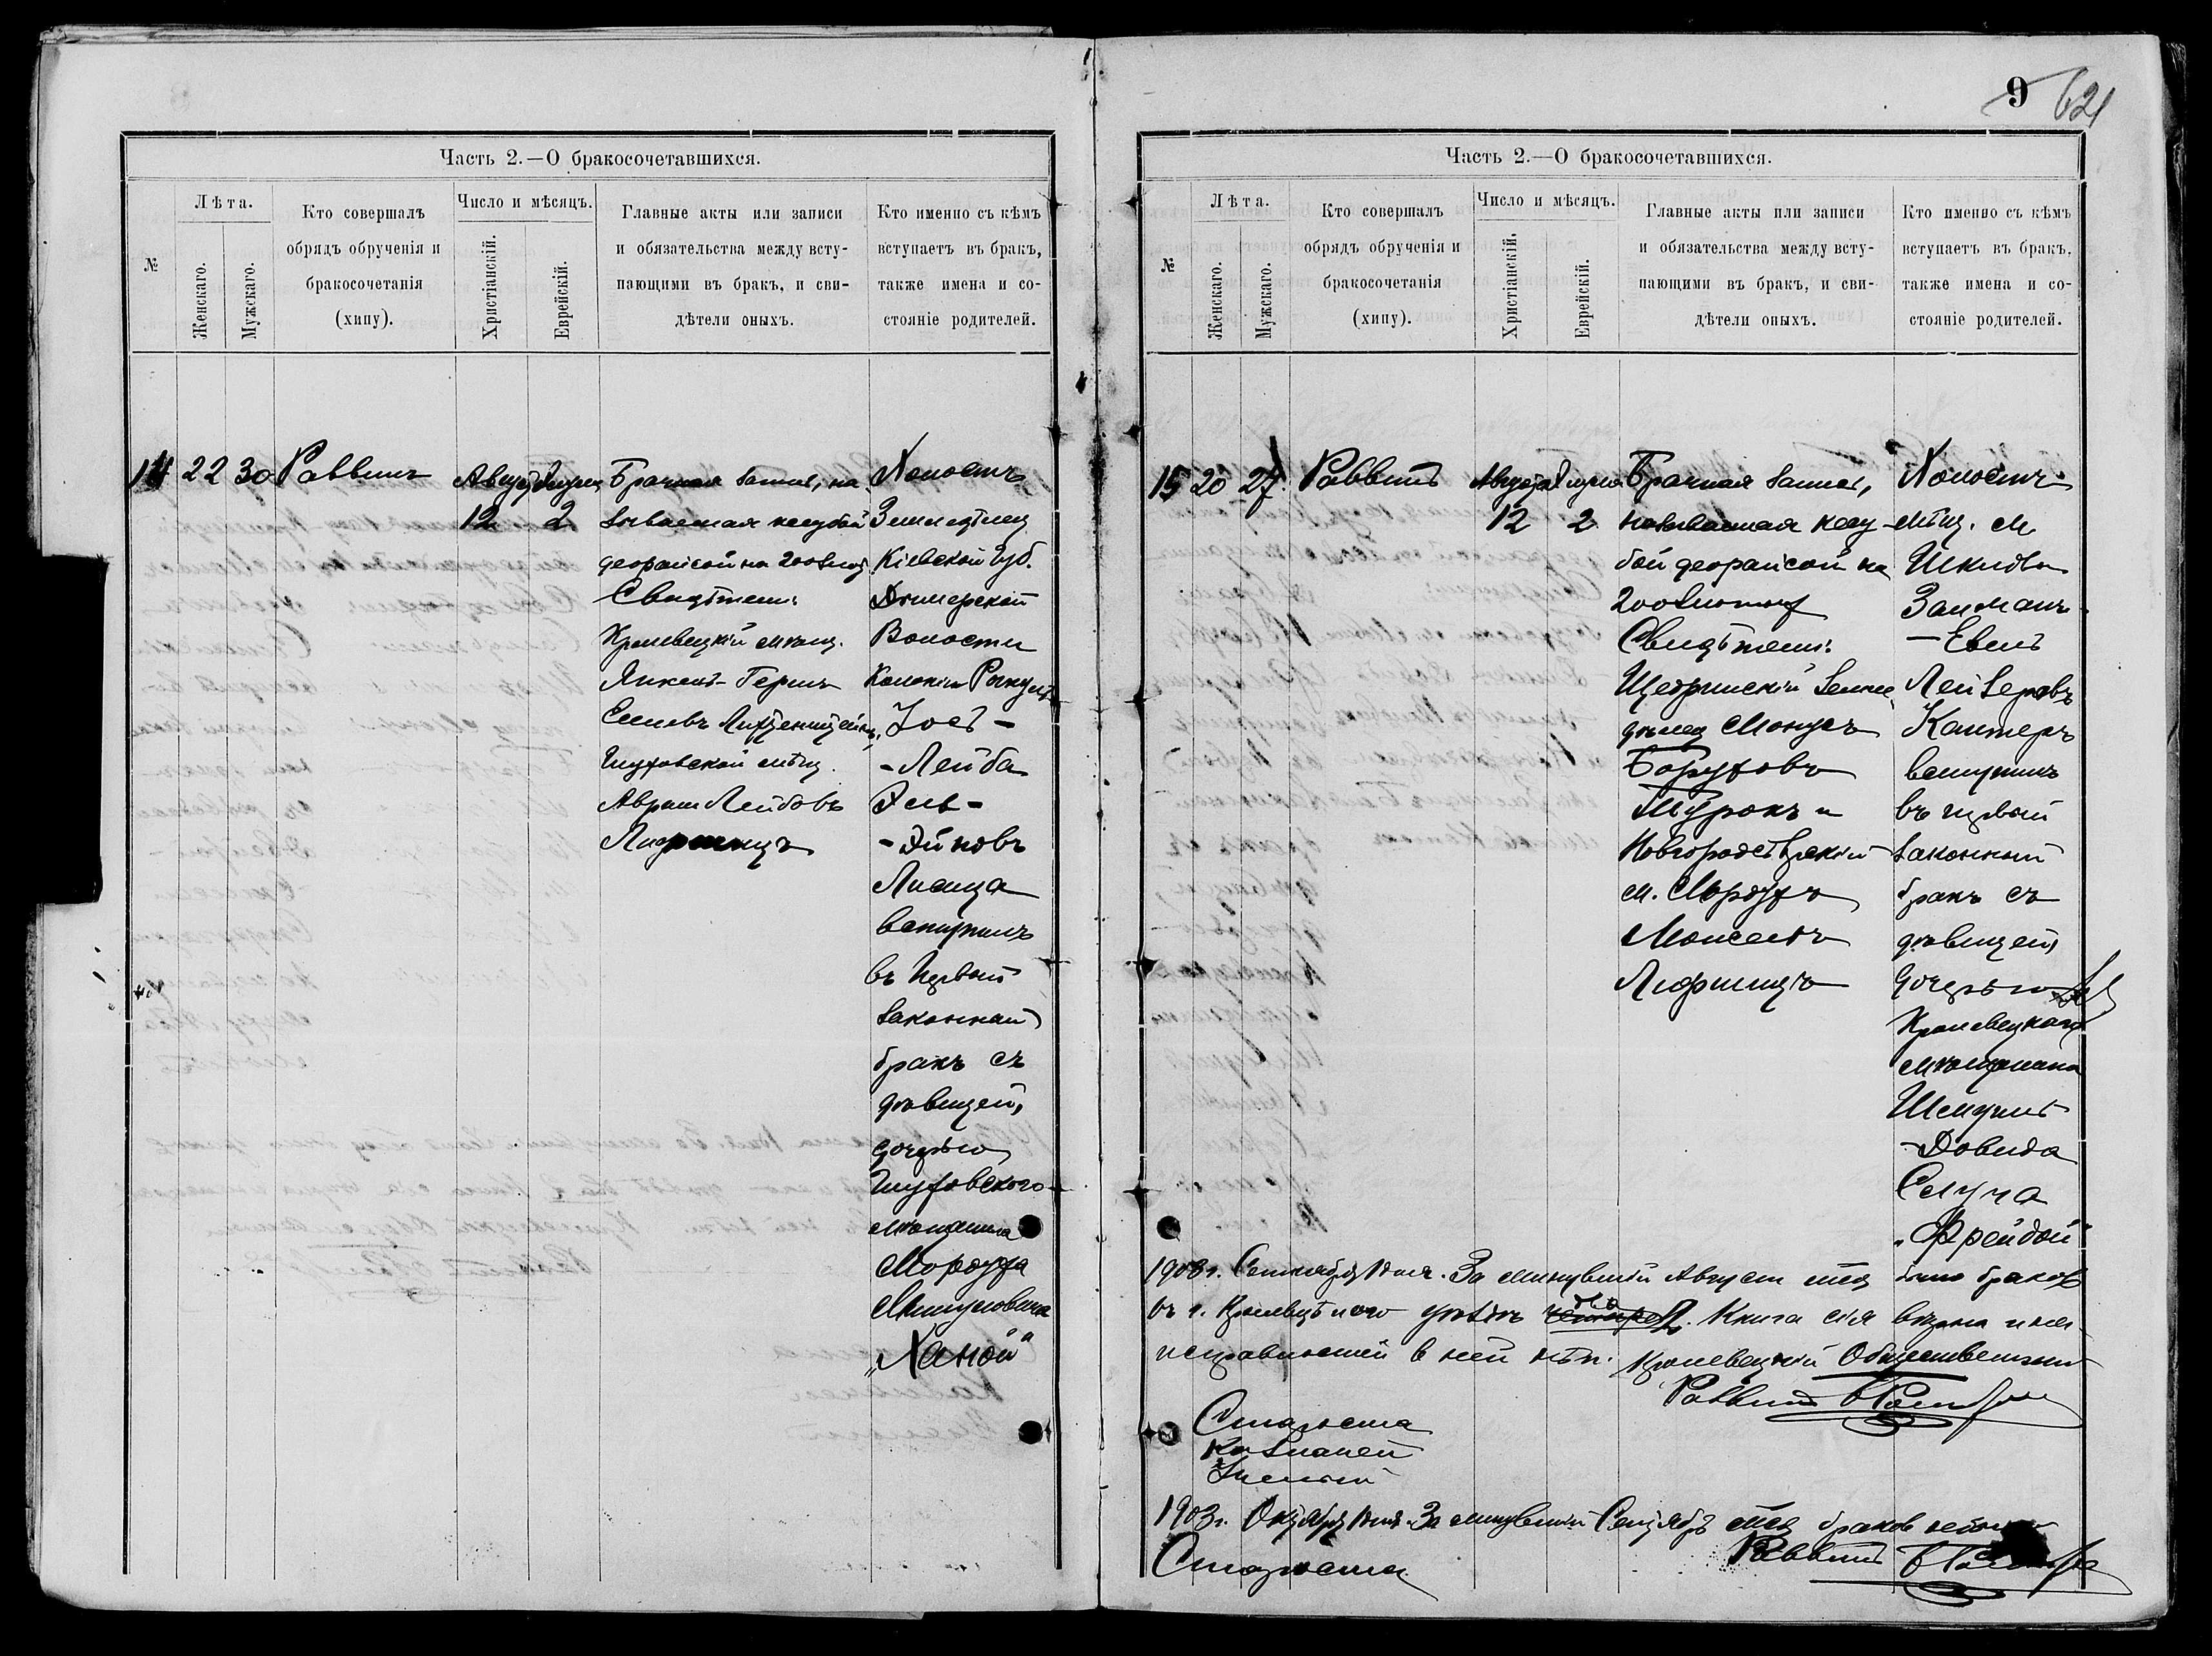 Часть 2.—О бракосочетавшихся.
№
Лѣта.
Женскаго.
Мужскаго.
Кто совершалъ
обрядъ обрученія и
бракосочетанія
(хипу).
Число и мѣсяцъ.
Христіанскій.
Еврейскій.
Главные акты или записи
и обязательства между всту-
пающими въ бракъ, и сви-
дѣтели оныхъ.
Кто именно съ кѣмъ
вступаетъ въ бракъ,
также имена и со-
стояніе родителей.
14
22
30
Раввинъ
Августа
12
2
Брачная запись, на
зываемая кесубой
деорайсой на 200 злот
Свидѣтели:
Кролевецкій мѣщ.
Янкель-Герш
Авраам Лейбовъ
Лифшицъ
Холостъ
Земледѣлец
Кіевской губ.
Дымерской
Волости
Колоніи
Іось-
-Лейба
-Дйновъ
Лисица
вступилъ
въ первый
законный
бракъ съ
дѣвицей,
дочерью
Глуховского
мѣщанина
Мордуха
"Ханой"
9 621
Часть 2.—О бракосочетавшихся.
№
Лѣта.
Женскаго.
Мужскаго.
Кто совершалъ
обрядъ обрученія и
бракосочетанія
(хипу).
Число и мѣсяцъ.
Христіанскій.
Еврейскій.
Главные акты или записи
и обязательства между всту-
пающими въ бракъ, и сви-
дѣтели оныхъ.
Кто именно съ кѣмъ
вступаетъ въ бракъ,
также имена и со-
стояніе родителей.
15
20
27
Раввинъ
Августа
12
2
Брачная запись,
называемая кесу-
бой деорайсой на
200 злотых
Свидѣтели:
Щедринскій земле
дѣлец
Боруховъ
Шуронъ и
м. Мордухъ
Лифшицъ
Холостъ
мѣщ. м
Шклова
Залманъ
-Евель
Лейзеровъ
Канторъ
вступилъ
въ первый
законный
бракъ съ
дѣвицей,
дочерью
Кролевецкого
мѣщанина
-Довида
"Фрейдой"
1903г. Сентября 1 дня. За минувшій Августъ мѣсяц было браковъ
въ г. Кролевцѣ и его уѣздѣ четыре два. Книга сія вѣрна и не-
исправностей в ней нѣт. Кролевецкій Общественный
Раввинъ
Староста
Казначей
Ученый
1903г. Октября 1 дня. За минувшій Сентябрь мѣсяц браков не было
Раввинъ
Староста